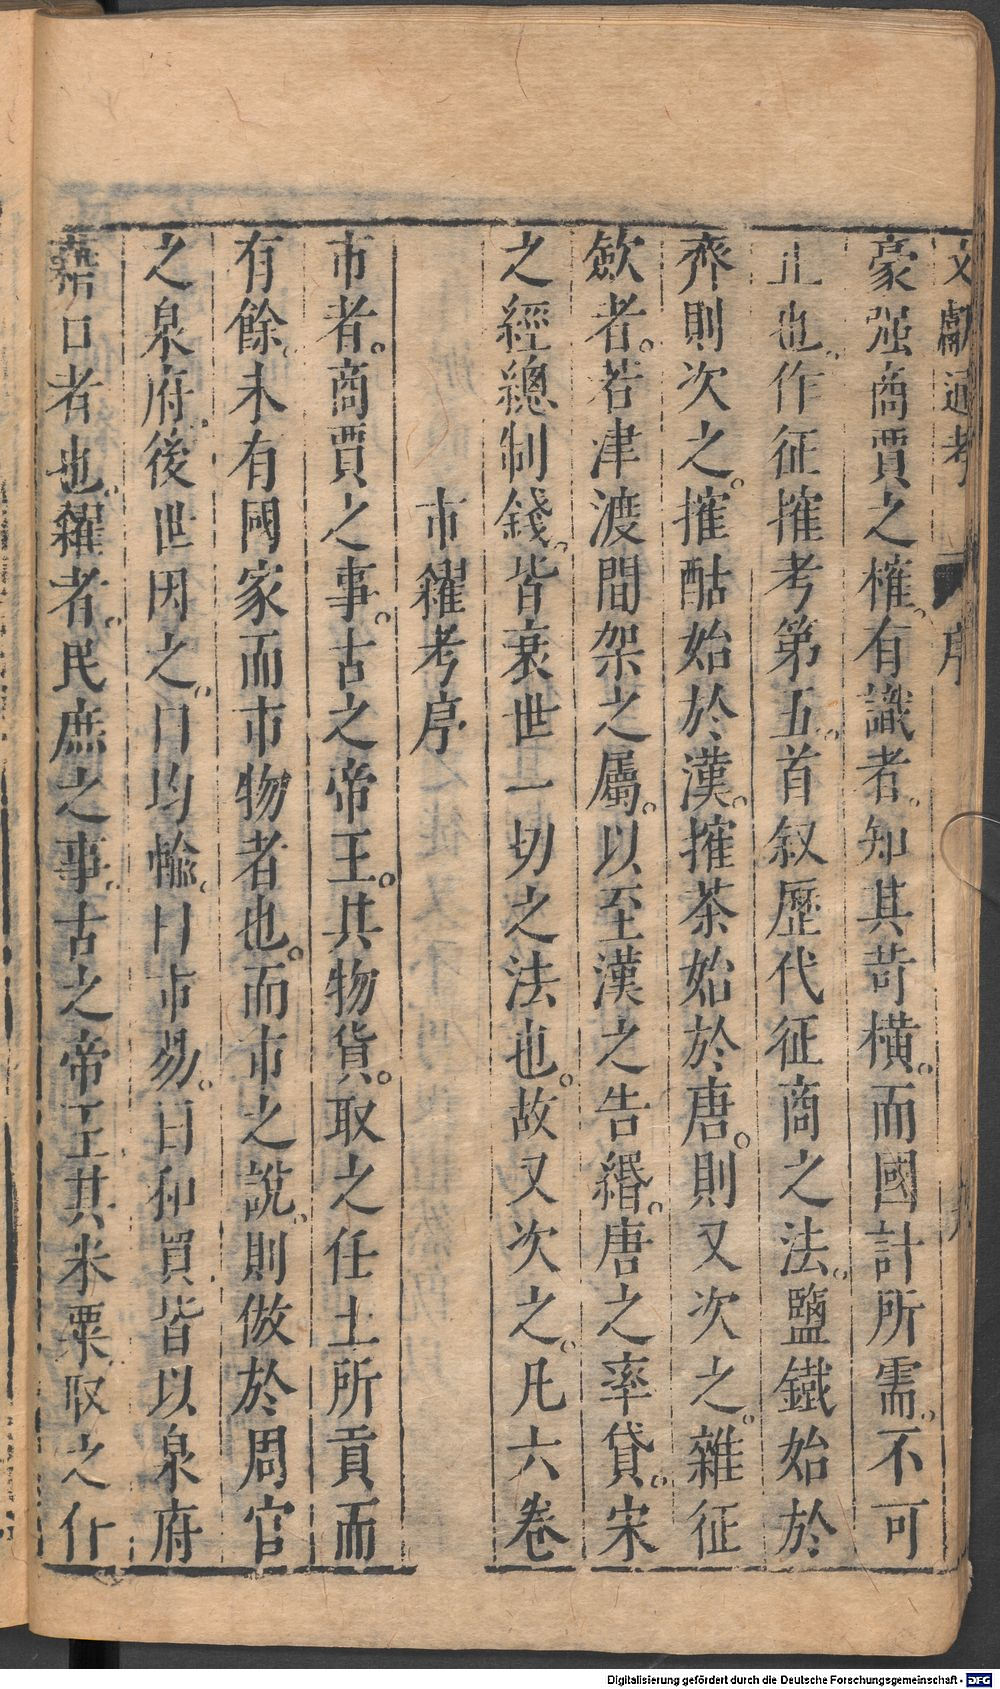 文獻通考 序
豪强商賈之榷。有識者。知其苛横。而國計所需。不可
止也。作征搉考第五。首叙歷代征商之法。鹽鐵始於
齊則次之。搉酤始於漢。搉茶始於唐。則又次之。雜征
歛者。若津渡間架之屬。以至漢之告緡。唐之率貸。宋
之經總制錢。皆衰世一切之法也。故又次之。凡六卷
市糴考序
市者。商賈之事。古之帝王。其物貨。取之任土所貢而
有餘。未有國家而市物者也。而市之說。則倣於周官
之泉府。後世因之。曰均輸。曰市易。曰和買。皆以泉府
藉口者也。糴者。民庶之事。古之帝王其米粟取之什
Digitalisierung gefördert durch die Deutsche Forschungsgemeinschaft - DFG